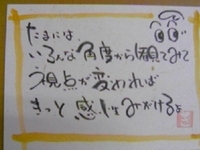 たまには
いろんな角度から観てみて
視点が変われば
きっと感じ